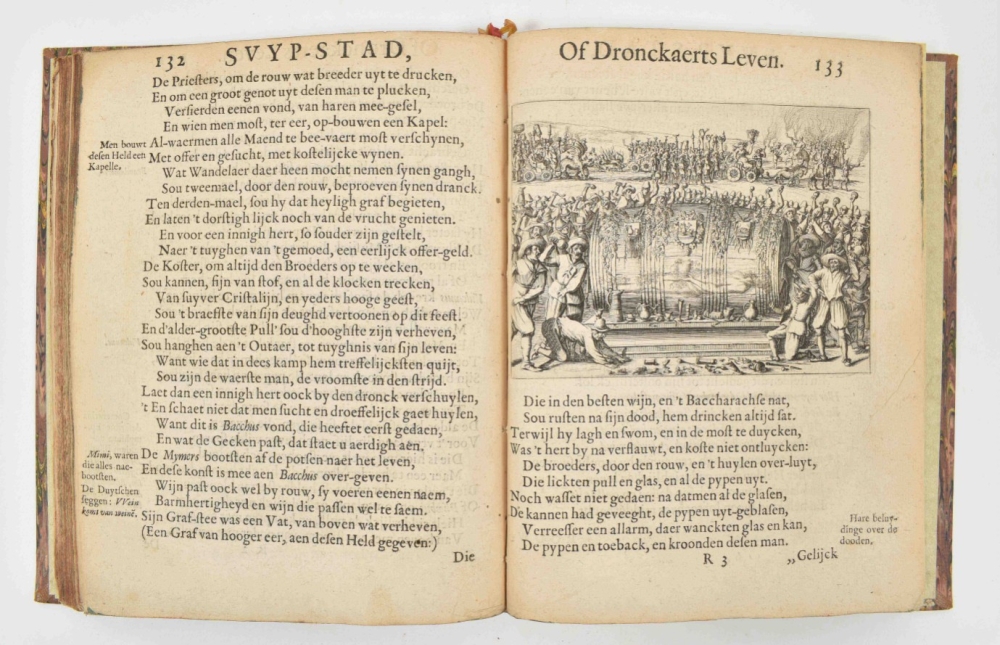 132 SVYP-STAD,
De Priesters, om de rouw wat breeder uyt te drucken,
En om een groot genot uyt desen man te plucken,
Versierden eenen vond, van haren mee-gesel,
En wien men most, ter eer, op-bouwen een Kapel:
Al-waermen alle Maend te bee-vaert most verschynen,
Met offer en gesucht, met kostelijcke wynen.
Wat Wandelaer daer heen mocht nemen synen gangh,
Sou tweemael, door den rouw, beproeven synen dranck.
Ten derden-mael, sou hy dat heyligh graf begieten,
En laten 't dorstigh lijck noch van de vrucht genieten.
En voor een innigh hert, so souder zijn gestelt,
Naer 't tuyghen van 't gemoed, een eerlijck offer-geld.
De Koster, om altijd den Broeders op te wecken,
Sou kannen, sijn van stof, en al de klocken trecken,
Van suyver Cristalijn, en yeders hooge geest,
Sou 't braefste van sijn deughd vertoonen op dit feest.
En d'alder-grootste Pull' sou d'hooghste zijn verheven,
Sou hanghen aen 't Outaer, tot tuyghnis van sijn leven:
Want wie dat in dees kamp hem treffelijcksten quijt,
Sou zijn de waerste man, de vroomste in den strijd.
Laet dan een innigh hert oock by den dronck verschuylen,
't En schaet niet dat men sucht en droeffelijck gaet huylen,
Want dit is Bacchus vond, die heeftet eerst gedaen,
En wat de Gecken past, dat staet u aerdigh aen.
De Mymers bootsten af de potsen naer het leven,
En dese konst is mee aen Bacchus over-geven.
Wijn past oock wel by rouw, sy voeren eenen naem,
Barmhertigheyd en wijn die passen wel te saem.
Sijn Graf-stee was een Vat, van boven wat verheven,
(Een Graf van hooger eer, aen desen Held gegeven:)
Die
Men bouwt
desen Held een
Kapelle.
Mimi, waren
die alles nae-
bootsten.
De Duytschen
seggen: VVein
komt van
Of Dronckaerts Leven. 133
Die in den besten wijn, en 't Baccharachse nat,
Sou rusten na sijn dood, hem drincken altijd sat.
Terwijl hy lagh en swom, en in de most te duycken,
Was 't hert by na verflauwt, en koste niet ontluycken:
De broeders, door den rouw, en 't huylen over-luyt,
Die lickten pull en glas, en al de pypen uyt.
Noch wasset niet gedaen: na datmen al de glasen,
De kannen had geveeght, de pypen uyt-geblasen,
Verreesser een allarm, daer wanckten glas en kan,
De pypen en toeback, en kroonden desen man.
Hare
dinge over de
dooden.
R 3 „Gelijck